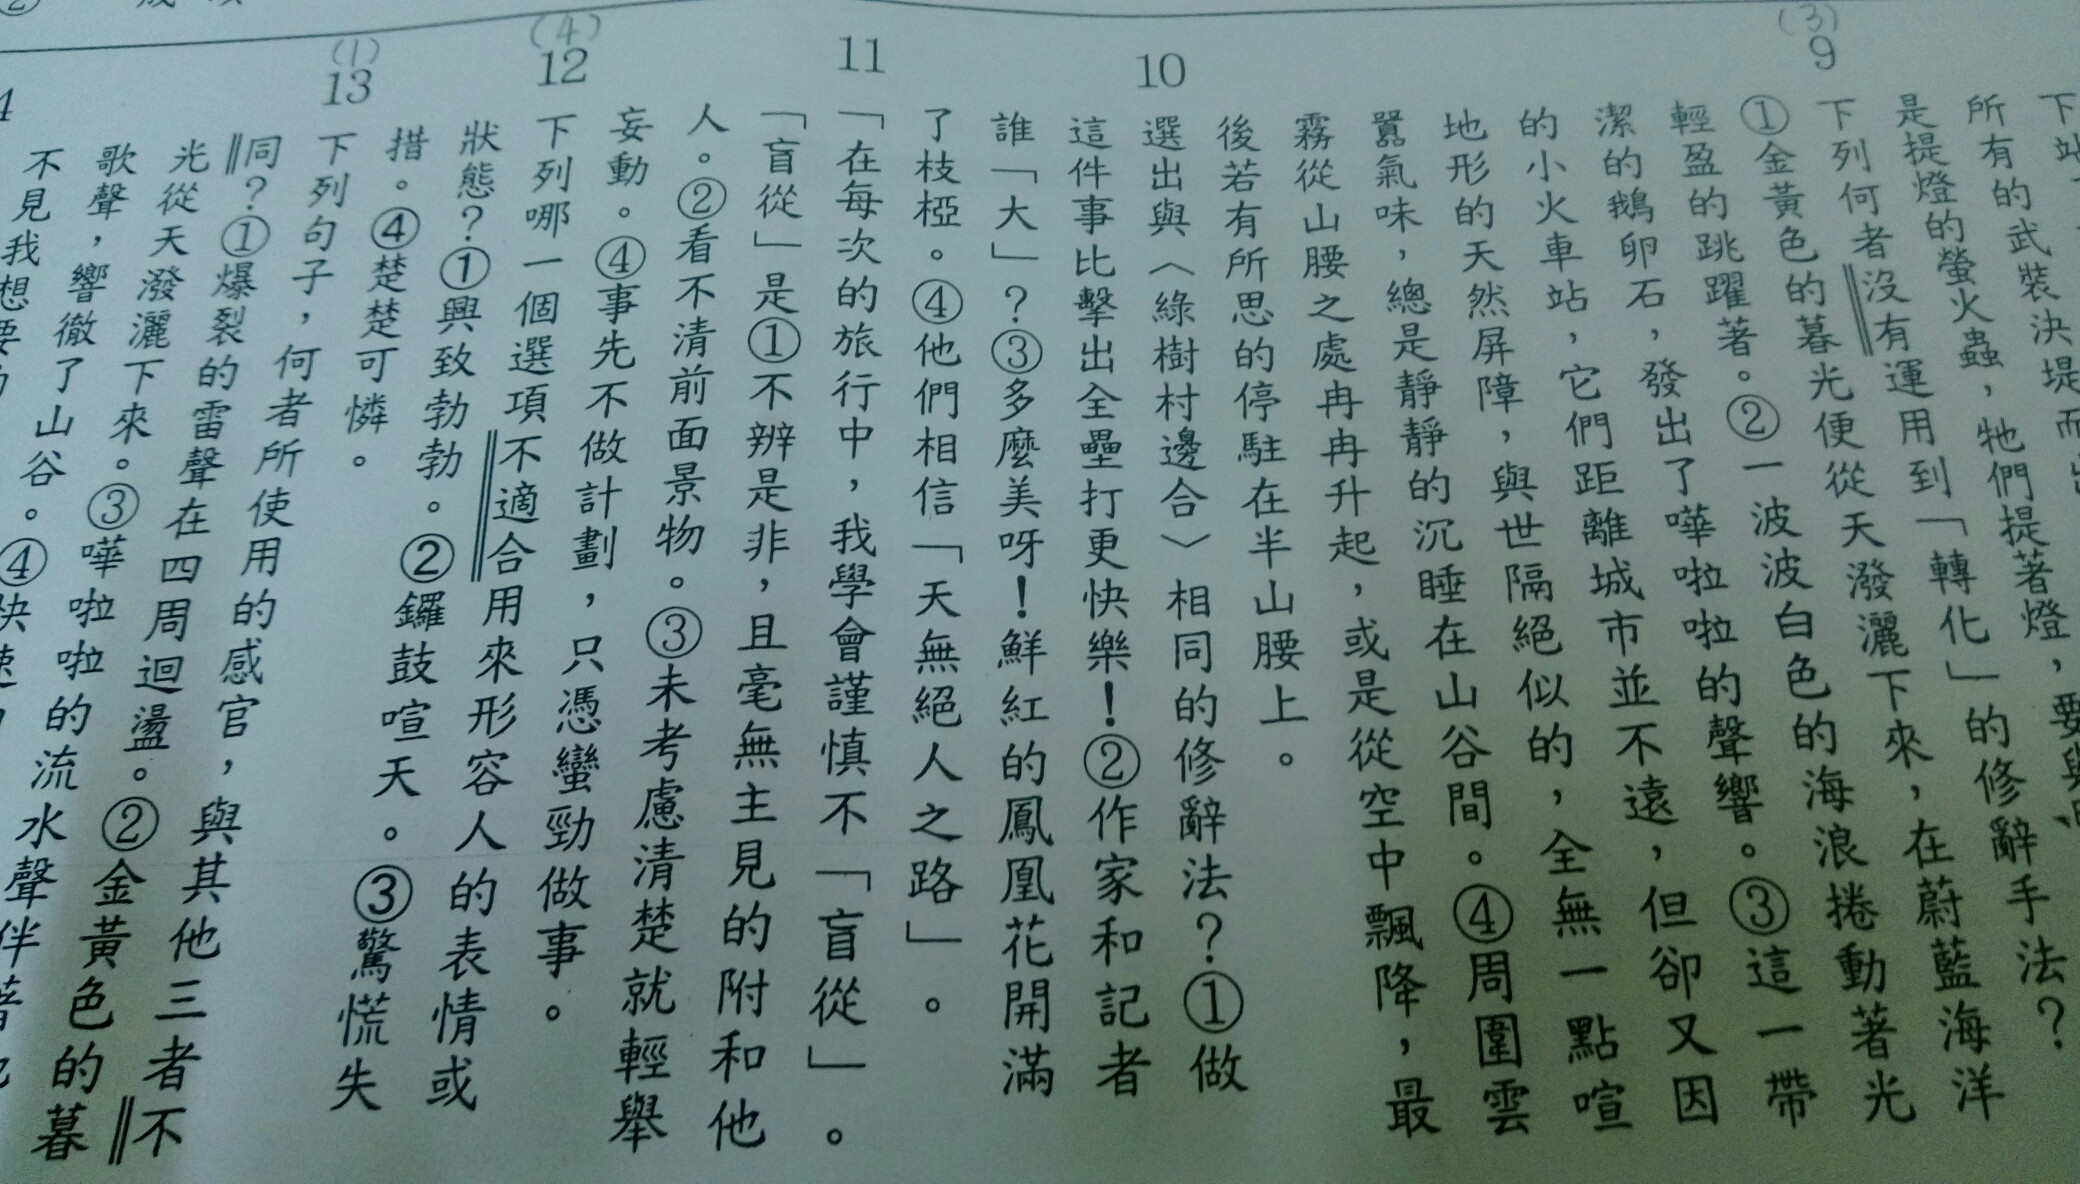 所有的武裝決堤而
是提燈的螢火蟲，牠們提著燈，要與
(3)
9
下列何者沒有運用到「轉化」的修辭手法？
①金黃色的暮光便從天潑灑下來，在蔚藍海洋
輕盈的跳躍著。②一波波白色的海浪捲動著光
潔的鵝卵石，發出了嘩啦啦的聲響。③這一帶
的小火車站，它們距離城市並不遠，但卻又因
地形的天然屏障，與世隔絕似的，全無一點喧
囂氣味，總是靜靜的沉睡在山谷間。④周圍雲
霧從山腰之處冉冉升起，或是從空中飄降，最
後若有所思的停駐在半山腰上。
10
選出與〈綠樹村邊合〉相同的修辭法？①做
這件事比擊出全壘打更快樂！②作家和記者
誰「大」？③多麼美呀！鮮紅的鳳凰花開滿
了枝椏。④他們相信「天無絕人之路」。
11
「在每次的旅行中，我學會謹慎不「盲從」。
「盲從」是①不辨是非，且毫無主見的附和他
人。②看不清前面景物。③未考慮清楚就輕舉
妄動。④事先不做計劃，只憑蠻勁做事。
(4)
12
下列哪一個選項不適合用來形容人的表情或
狀態？①興致勃勃。②鑼鼓喧天。③驚慌失
措。④楚楚可憐。
(1)
13
下列句子，何者所使用的感官，與其他三者不
同？①爆裂的雷聲在四周迴盪。②金黃色的暮
光從天潑灑下來。③嘩啦啦的流水聲伴著
歌聲，響徹了山谷。④快速
不見我想要